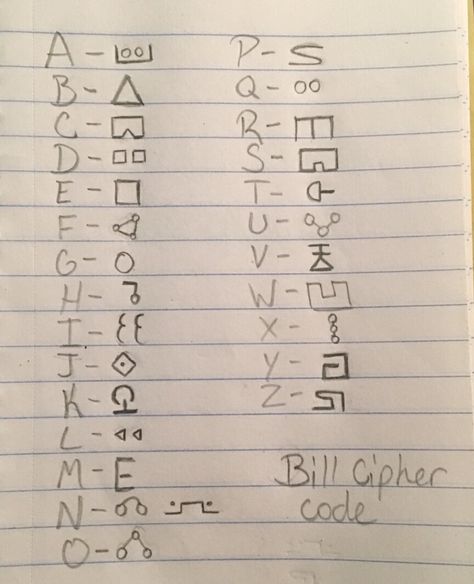 A -
B -
C -
D -
E -
F -
G -
H -
I -
J -
K -
L -
M -
N -
O -
P -
Q -
R -
S -
T -
U -
V -
W -
X -
Y -
Z -
Bill Cipher
code